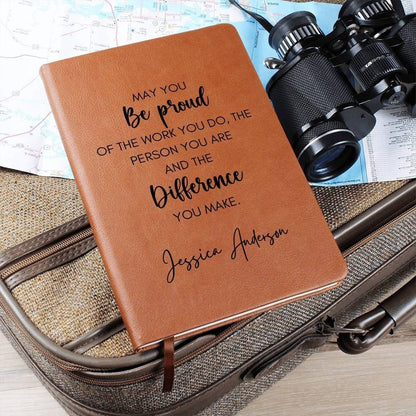 MAY YOU
Be proud
OF THE WORK YOU DO, THE
PERSON YOU ARE
AND THE
Difference
YOU MAKE.
Jessica Anderson